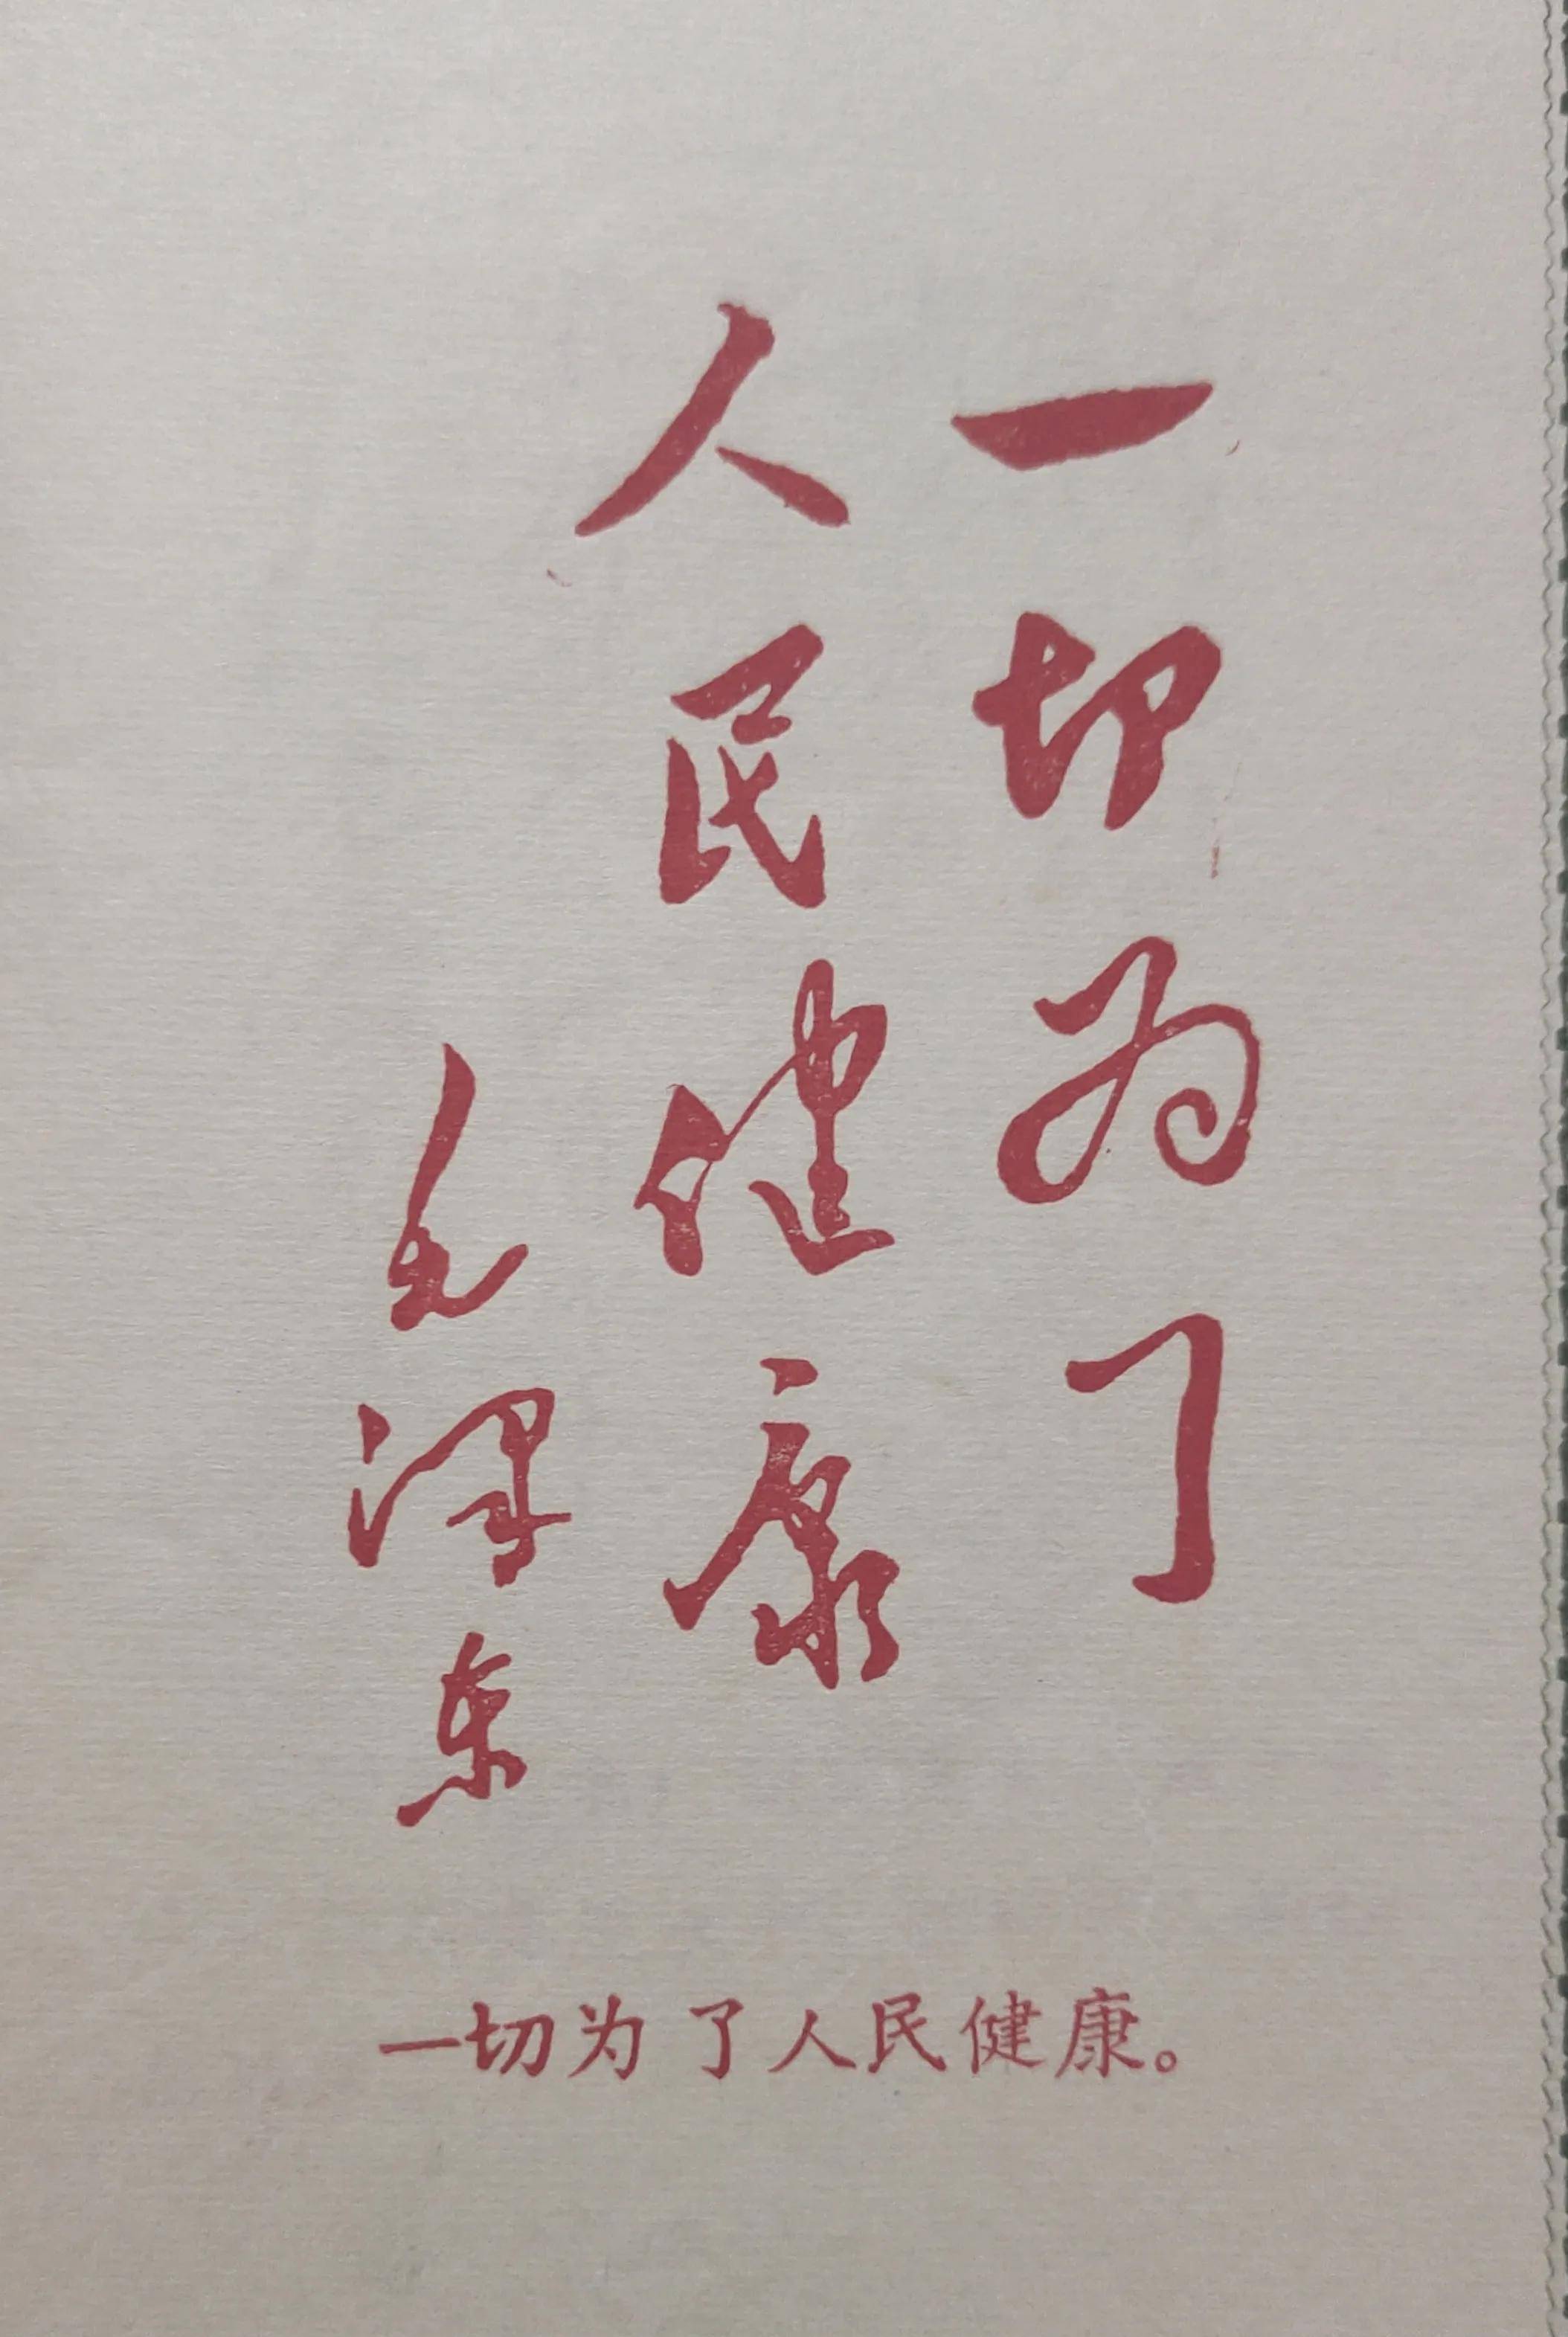 一切为了
人民健康
毛泽东
一切为了人民健康。